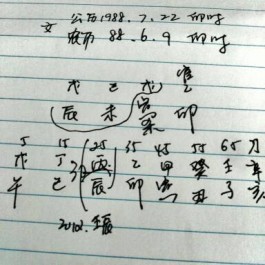 女 公历1988.7.22 卯时
农历 88.6.9 卯时
戊 己 戊
辰 未 寅 卯
5 15 25 35 45 55 65
戊 丁 丙 乙 甲 癸 壬 辛
午 巳 辰 卯 寅 丑 子 亥